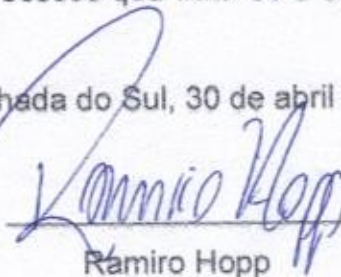 hada do Sul, 30 de abril
Ramiro Hopp
Ramiro Hopp